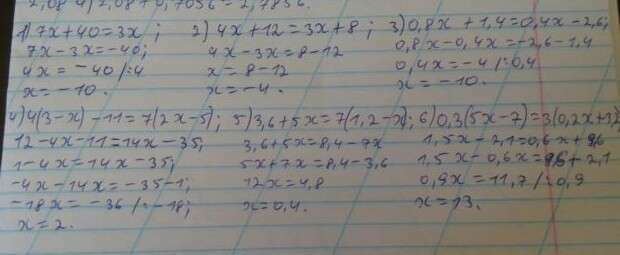 2,08 4) 2,08 + 0,7056 = 2,7856.
1) 7x + 40 = 3x ; 2) 4x + 12 = 3x + 8 ; 3) 0,8x + 1,4 = 0,4x - 2,6;
7x - 3x = -40; 4x - 3x = 8 - 12 0,8x - 0,4x = -2,6 - 1,4
4x = -40 /:4 x = 8 - 12 0,4x = -4 /:0,4
x = -10. x = -4. x = -10.
4) 4(3-x) - 11 = 7(2x-5); 5) 3,6 + 5x = 7(1,2-x); 6) 0,3(5x-7) = 3(0,2x+3,2)
12 - 4x - 11 = 14x - 35; 3,6 + 5x = 8,4 - 7x 1,5x - 2,1 = 0,6x + 9,6
1 - 4x = 14x - 35; 5x + 7x = 8,4 - 3,6 1,5x - 0,6x = 9,6 + 2,1
-4x - 14x = -35 - 1; 12x = 4,8 0,9x = 11,7 /:0,9
-18x = -36 /:-18; x = 0,4. x = 13.
x = 2.